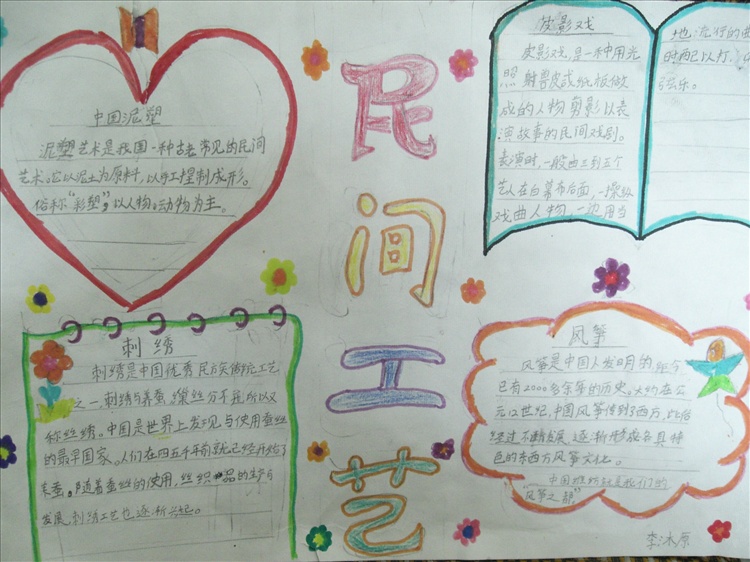 民间工艺
中国泥塑
泥塑艺术是我国一种古老常见的民间
艺术。它以泥土为原料，以手工捏制成形。
俗称"彩塑"，以人物、动物为主。
皮影戏
皮影戏，是一种用光
照射兽皮或纸板做
成的人物剪影以表
演故事的民间戏剧。
表演时，一般由三到五个
艺人在白幕布后面，一操纵
戏曲人物，一边用当
地流行的曲
时配以打
弦乐。
刺绣
刺绣是中国优秀民族传统工艺
之一，刺绣与养蚕，缫丝分不开，所以又
称丝绣。中国是世界上发现与使用蚕丝
的最早国家。人们在四五千年前就已经开始了
养蚕。随着蚕丝的使用，丝织品的生产与
发展，刺绣工艺也逐渐兴起。
风筝
风筝是中国人发明的，距今
已有2000多年的历史。大约在公
元12世纪，中国风筝传到了西方，此后
经过不断发展，逐渐形成各具特
色的东西方风筝文化。
中国潍坊就是我们的
"风筝之都"
李冰原